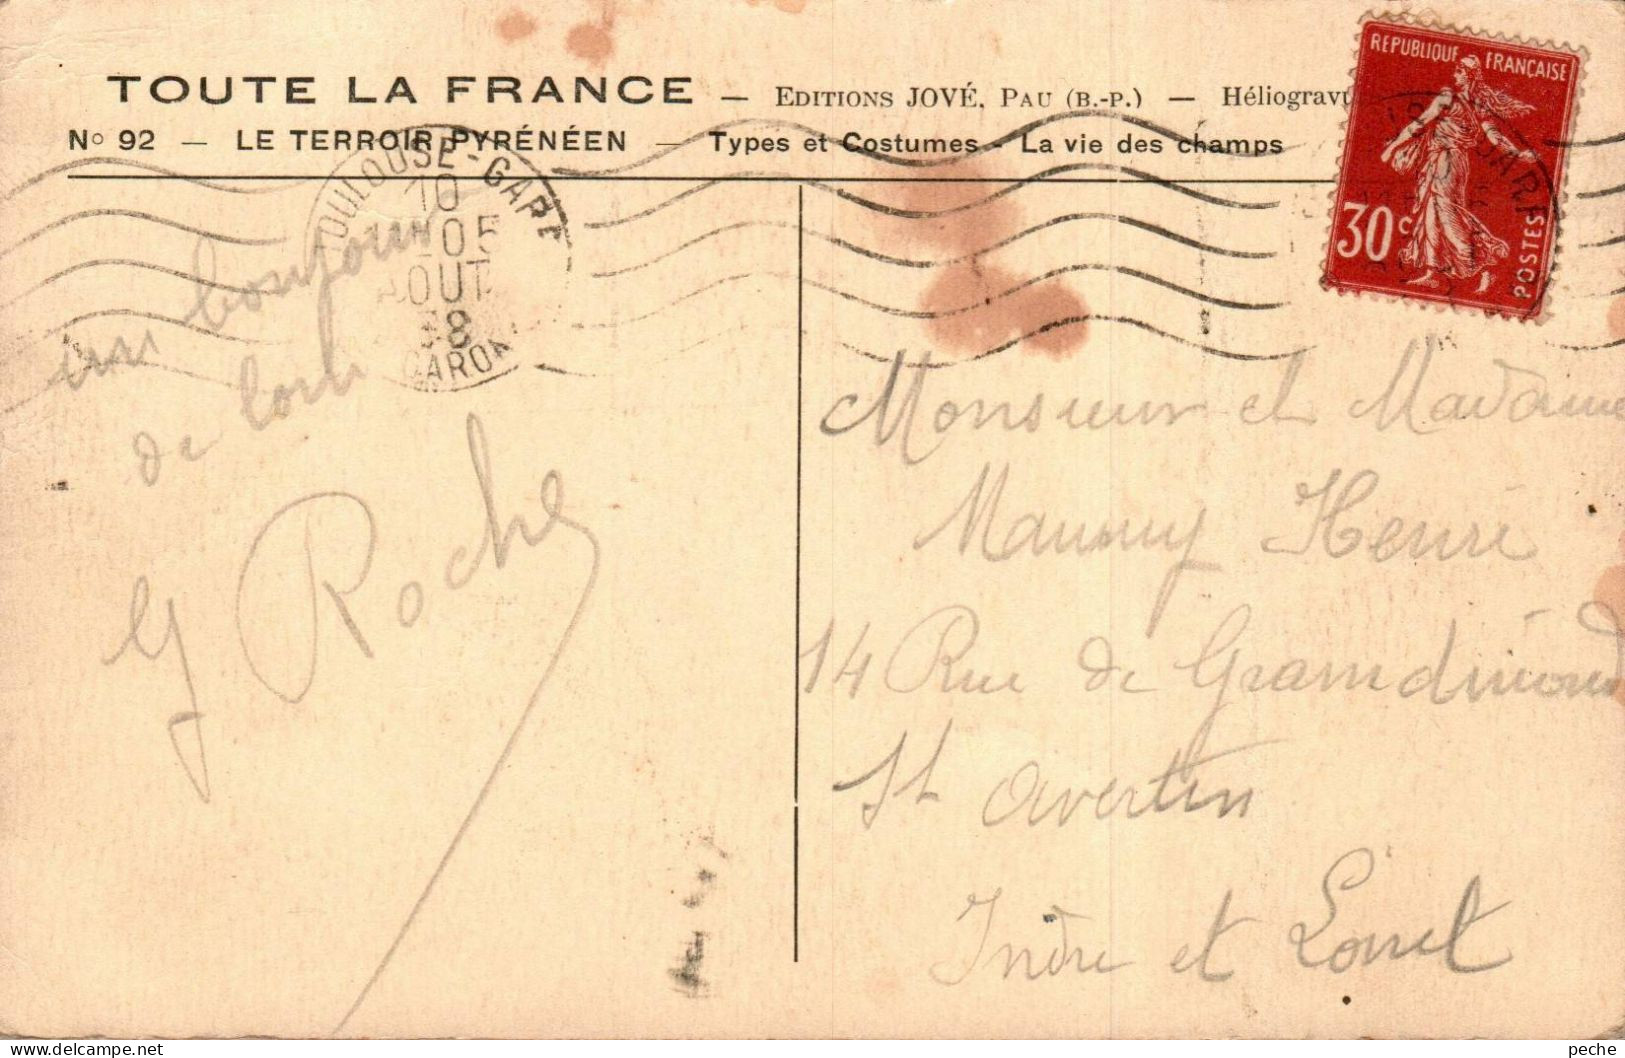 TOUTE LA FRANCE — EDITIONS JOVÉ, PAU (B.-P.) — Héliogravu
No 92 — LE TERROIR PYRÉNÉEN — Types et Costumes - La vie des champs
REPUBLIQUE FRANÇAISE
30c
POSTES
TOULOUSE-GARE
10
05
AOUT
38
GARON
un bonjour
de
Roche
Monsieur et Madame
Henri
14 Rue de Grandmond
St Avertin
Indre et Loiret
peche
Delcampe.net